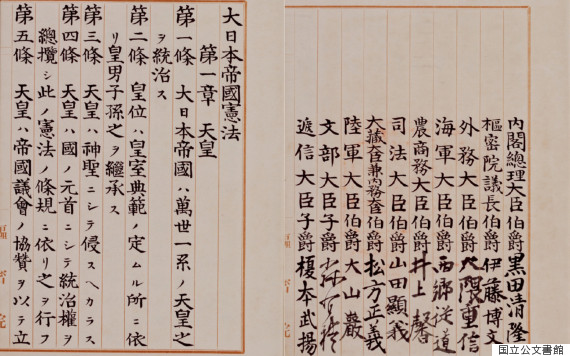 内閣總理大臣伯爵黒田清隆
樞密院議長伯爵伊藤博文
外務大臣伯爵大隈重信
海軍大臣伯爵西郷從道
農商務大臣伯爵井上馨
司法大臣伯爵山田顯義
大藏大臣兼内務大臣伯爵松方正義
陸軍大臣伯爵大山巖
文部大臣子爵森有禮
遞信大臣子爵榎本武揚
大日本帝國憲法
第一章 天皇
第一條 大日本帝國ハ萬世一系ノ天皇之
ヲ統治ス
第二條 皇位ハ皇室典範ノ定ムル所ニ依
リ皇男子孫之ヲ繼承ス
第三條 天皇ハ神聖ニシテ侵スヘカラス
第四條 天皇ハ國ノ元首ニシテ統治權ヲ
總攬シ此ノ憲法ノ條規ニ依リ之ヲ行フ
第五條 天皇ハ帝國議會ノ協贊ヲ以テ立
国立公文書館